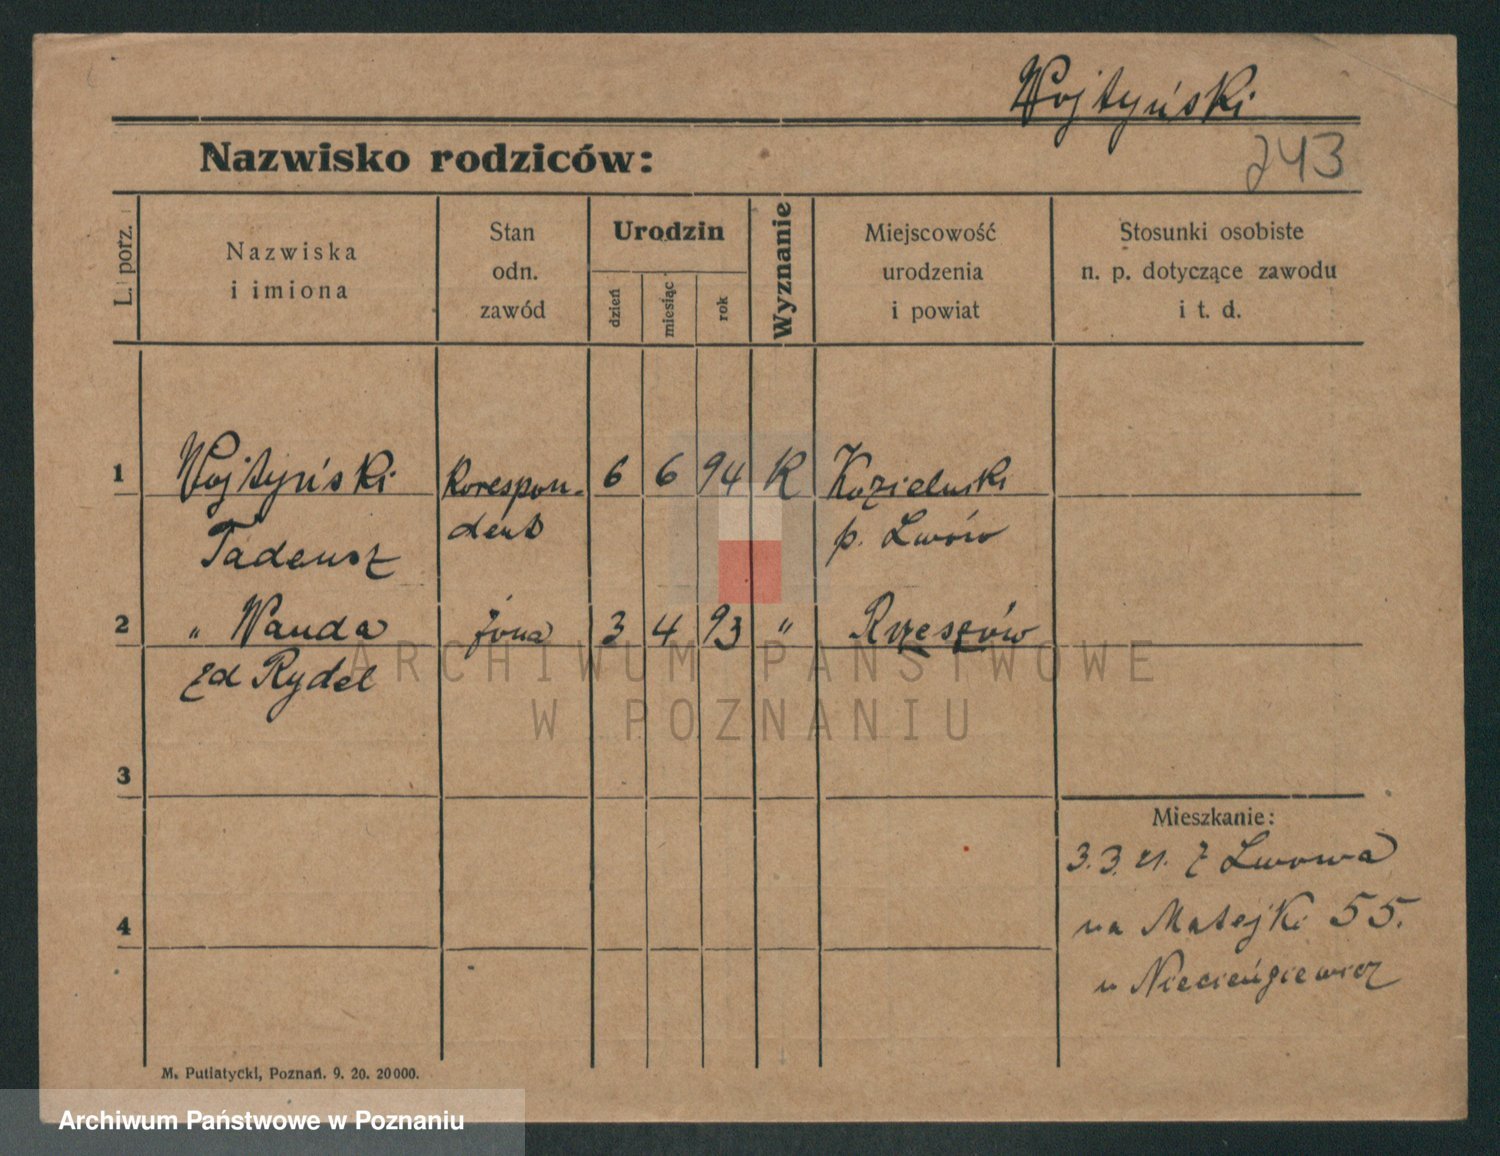 Wojtyński
Nazwisko rodziców:
243
L. porz.
Nazwiska
i imiona
Stan
odn.
zawód
Urodzin
dzień
miesiąc
rok
Wyznanie
Miejscowość
urodzenia
i powiat
Stosunki osobiste
n. p. dotyczące zawodu
i t. d.
1 Wojtyński Korespon- 6 6 94 K Kozielniki
Tadeusz dent p. Lwów
2 „ Wanda żona 3 4 93 „ Rzeszów
zd Rydel
ARCHIWUM PAŃSTWOWE
W POZNANIU
3
Mieszkanie:
3.3.21. z Lwowa
4
na Matejki 55.
u
M. Putiatycki, Poznań. 9. 20. 20000.
Archiwum Państwowe w Poznaniu